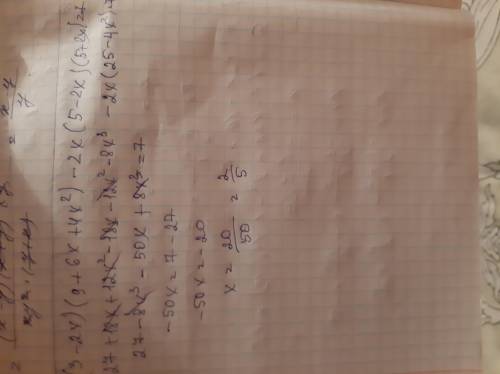 = (x-y)(x+y) xy = x-y
xy · (x+y) y
(3-2x)(9+6x+4x²)-2x(5-2x)(5+2x)=7
27+18x+12x²-18x-12x²-8x³-2x(25-4x²)=7
27-8x³-50x+8x³=7
-50x=7-27
-50x=-20
x=20/50=2/5